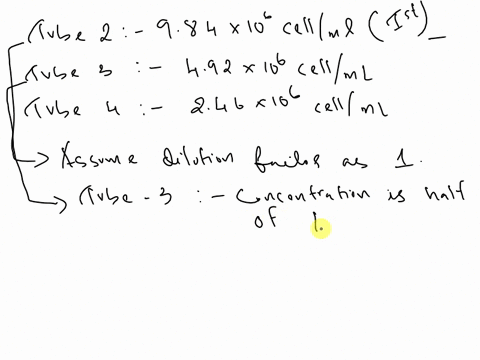 Tube 2 :- 9.84 × 10⁶ cell/ml (Ist)
Tube 3 :- 4.92 × 10⁶ cell/mL
Tube 4 :- 2.46 × 10⁶ cell/mL
Assume dilution as 1.
Tube - 3 :- Concentration is half
of